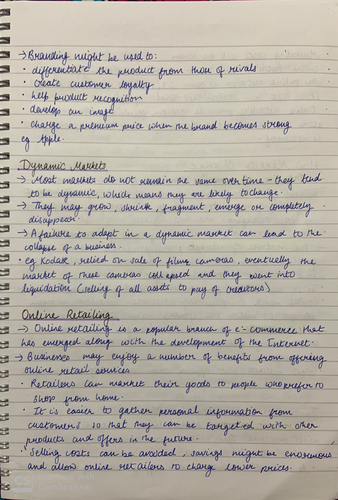 → Branding might be used to:
· differentiate the product from those of rivals
· create customer loyalty
· help product recognition
· develop an image
· charge a premium price when the brand becomes strong
eg Apple.
Dynamic Markets
→ Most markets do not remain the same over time - they tend
to be dynamic, which means they are likely to change.
→ They may grow, shrink, fragment, emerge or completely
disappear
→ A failure to adapt in a dynamic market can lead to the
collapse of a business.
· eg Kodak, relied on sale of filming cameras, eventually the
market of these cameras collapsed and they went into
liquidation (selling of all assets to pay of creditors)
Online Retailing
→ Online retailing is a popular branch of e-commerce that
has emerged along with the development of the Internet.
→ Businesses may enjoy a number of benefits from offering
online retail services
· Retailers can market their goods to people who prefer to
shop from home.
· It is easier to gather personal information from
customers so that they can be targeted with other
products and offers in the future.
· Selling costs can be avoided, savings might be enormous
and allow online retailers to charge lower prices.